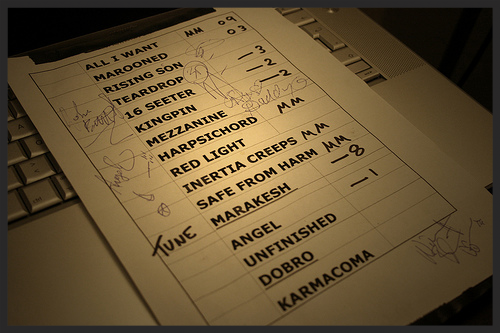 ALL I WANT MM 09
MAROONED 03
RISING SON
TEARDROP -3
16 SEETER -2
KINGPIN -2
MEZZANINE
HARPSICHORD MM
RED LIGHT
INERTIA CREEPS MM
SAFE FROM HARM MM
MARAKESH -8
TUNE
ANGEL -1
UNFINISHED
DOBRO
KARMACOMA